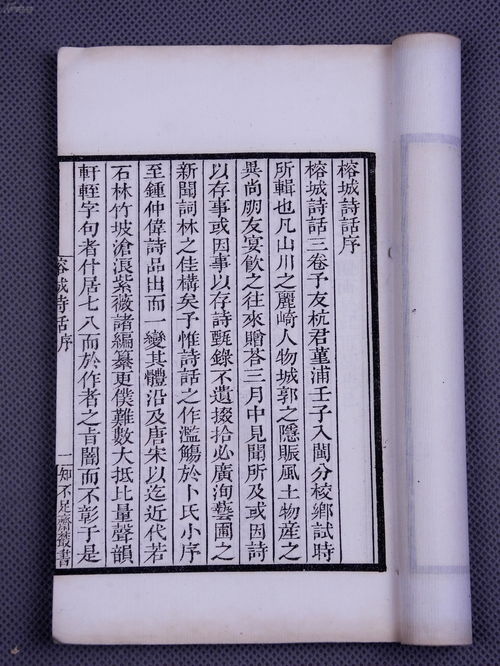 榕城詩話序
榕城詩話三卷予友杭君菫浦壬子入閩分校鄉試時
所輯也凡山川之麗崎人物城郭之隱賑風土物產之
異尚朋友宴飲之往來贈荅三月中見聞所及或因詩
以存事或因事以存詩甄錄不遺掇拾必廣洵藝圃之
新聞詞林之佳構矣予惟詩話之作濫觴於卜氏小序
至鍾仲偉詩品出而一變其體沿及唐宋以迄近代若
石林竹坡滄浪紫薇諸編纂更僕難數大抵比量聲韻
軒輊字句者什居七八而於作者之旨闇而不彰于是
榕城詩話序
一
知不足齋叢書